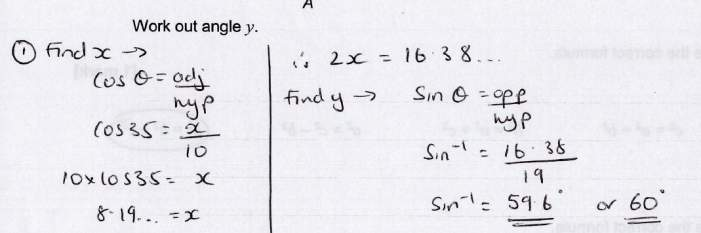 A
Work out angle y.
① Find x →
Cos θ = adj
hyp
Cos35 = x
10
10 x Cos35 = x
8.19... = x
∴ 2x = 16.38...
find y → Sin θ = opp
hyp
Sin⁻¹ = 16.38
19
Sin⁻¹ = 59.6° or 60°